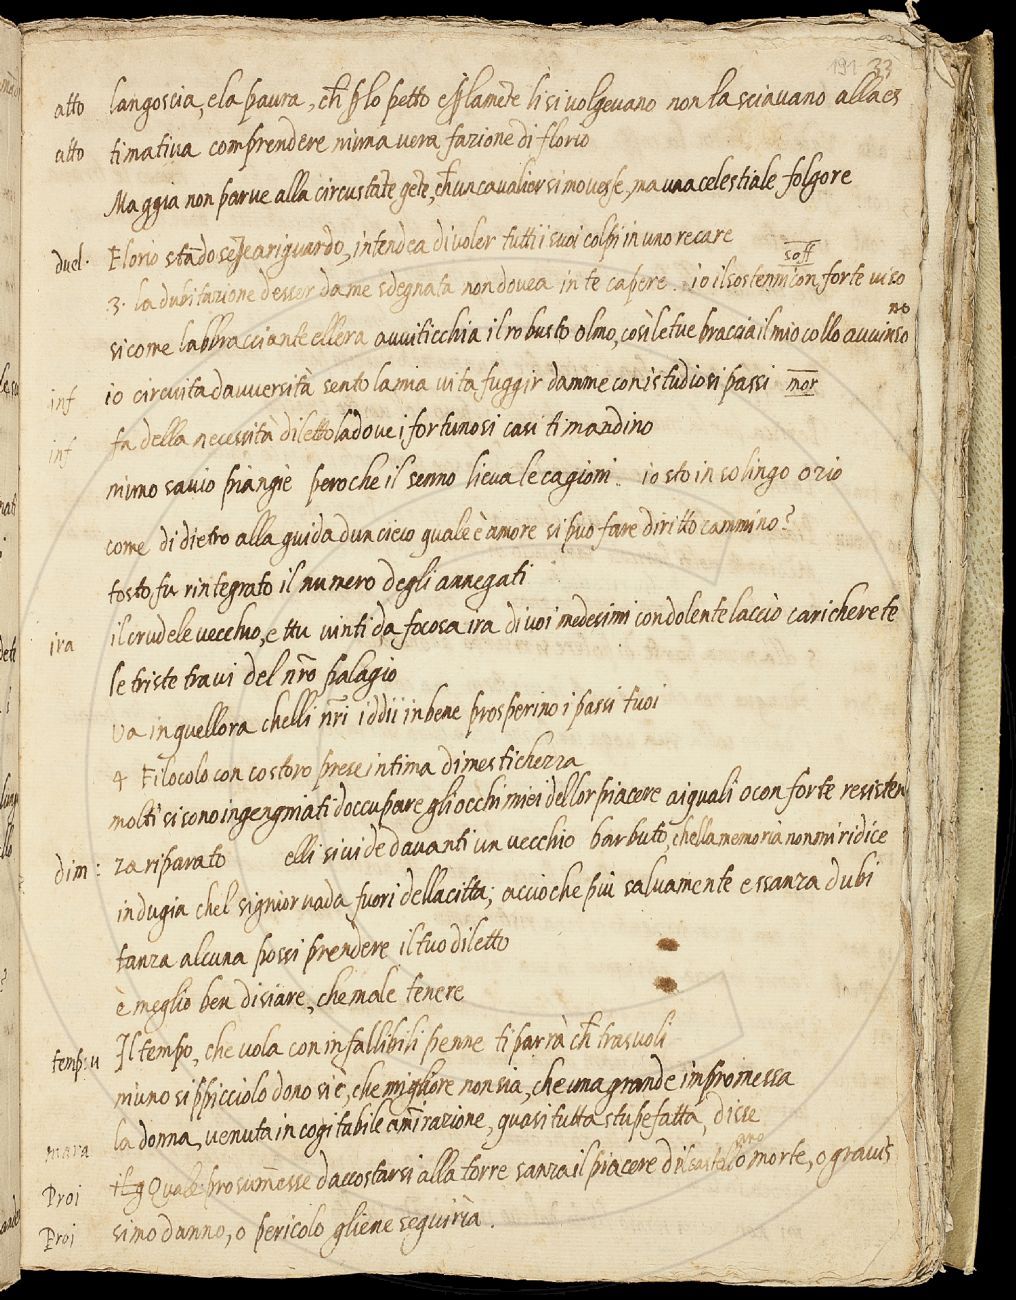 191 33
atto langoscia, e la paura, ch̄ ꝑ lo petto e ꝑ lamēte li si volgevano non lasciavano alla es
atto timativa comprendere niuna vera fazione di florio
Maggia non parve alla circustāte gēte, ch̄ un cavalier si movesse, ma una celestiale folgore
duel. Florio stādo sēpre a riguardo, intendea di voler tutti i suoi colpi in uno recare
soff
.3. la dubitazione desser da me sdegnata non dovea in te capere. io il sostenni con forte viso
no
sicome labbracciante ellera avviticchia il robusto olmo, così le tue braccia il mio collo avvinso
inf io circuita davversità sento la mia vita fuggir damme con istudiosi passi mor
inf fa della necessità diletto la dove i fortunosi casi ti mandino
niuno savio piangiè peroche il senno lieva le cagioni. io sto in solingo ozio
come di dietro alla guida dun cieco quale è amore si può fare diritto cammino?
tosto fu rintegrato il numero degli annegati
ira il crudele vecchio, e ttu vinti da focosa ira di voi medesimi con dolente laccio caricherete
le triste travi del nr̄o palagio
va in quellora chelli nr̄i iddii in bene prosperino i passi tuoi
4 Filocolo con costoro prese intima dimestichezza
molti si sono ingengniati doccupare gli occhi miei dellor piacere a i quali o con forte resisten
dim: za riparato elli si vide davanti un vecchio barbuto, chella memoria non mi ridice
indugia chel signior vada fuori della citta; accioche più salvamente e ssanza dubi
tanza alcuna possi prendere il tuo diletto
è meglio ben disiare, che male tenere
temp:u Il tempo, che vola con infallibili penne ti parrà ch̄ trasvoli
niuno si ppicciolo dono si è, che migliore non sia, che una grande impromessa
mara la donna, venuta in cogitabile am̄irazione, quasi tutta stupefatta, disse
ano
Proi Quale prosum̄esse daccostarsi alla torre sanza il piacere dil castel o morte, o gravis
Proi simo danno, o pericolo gliene seguirìa.